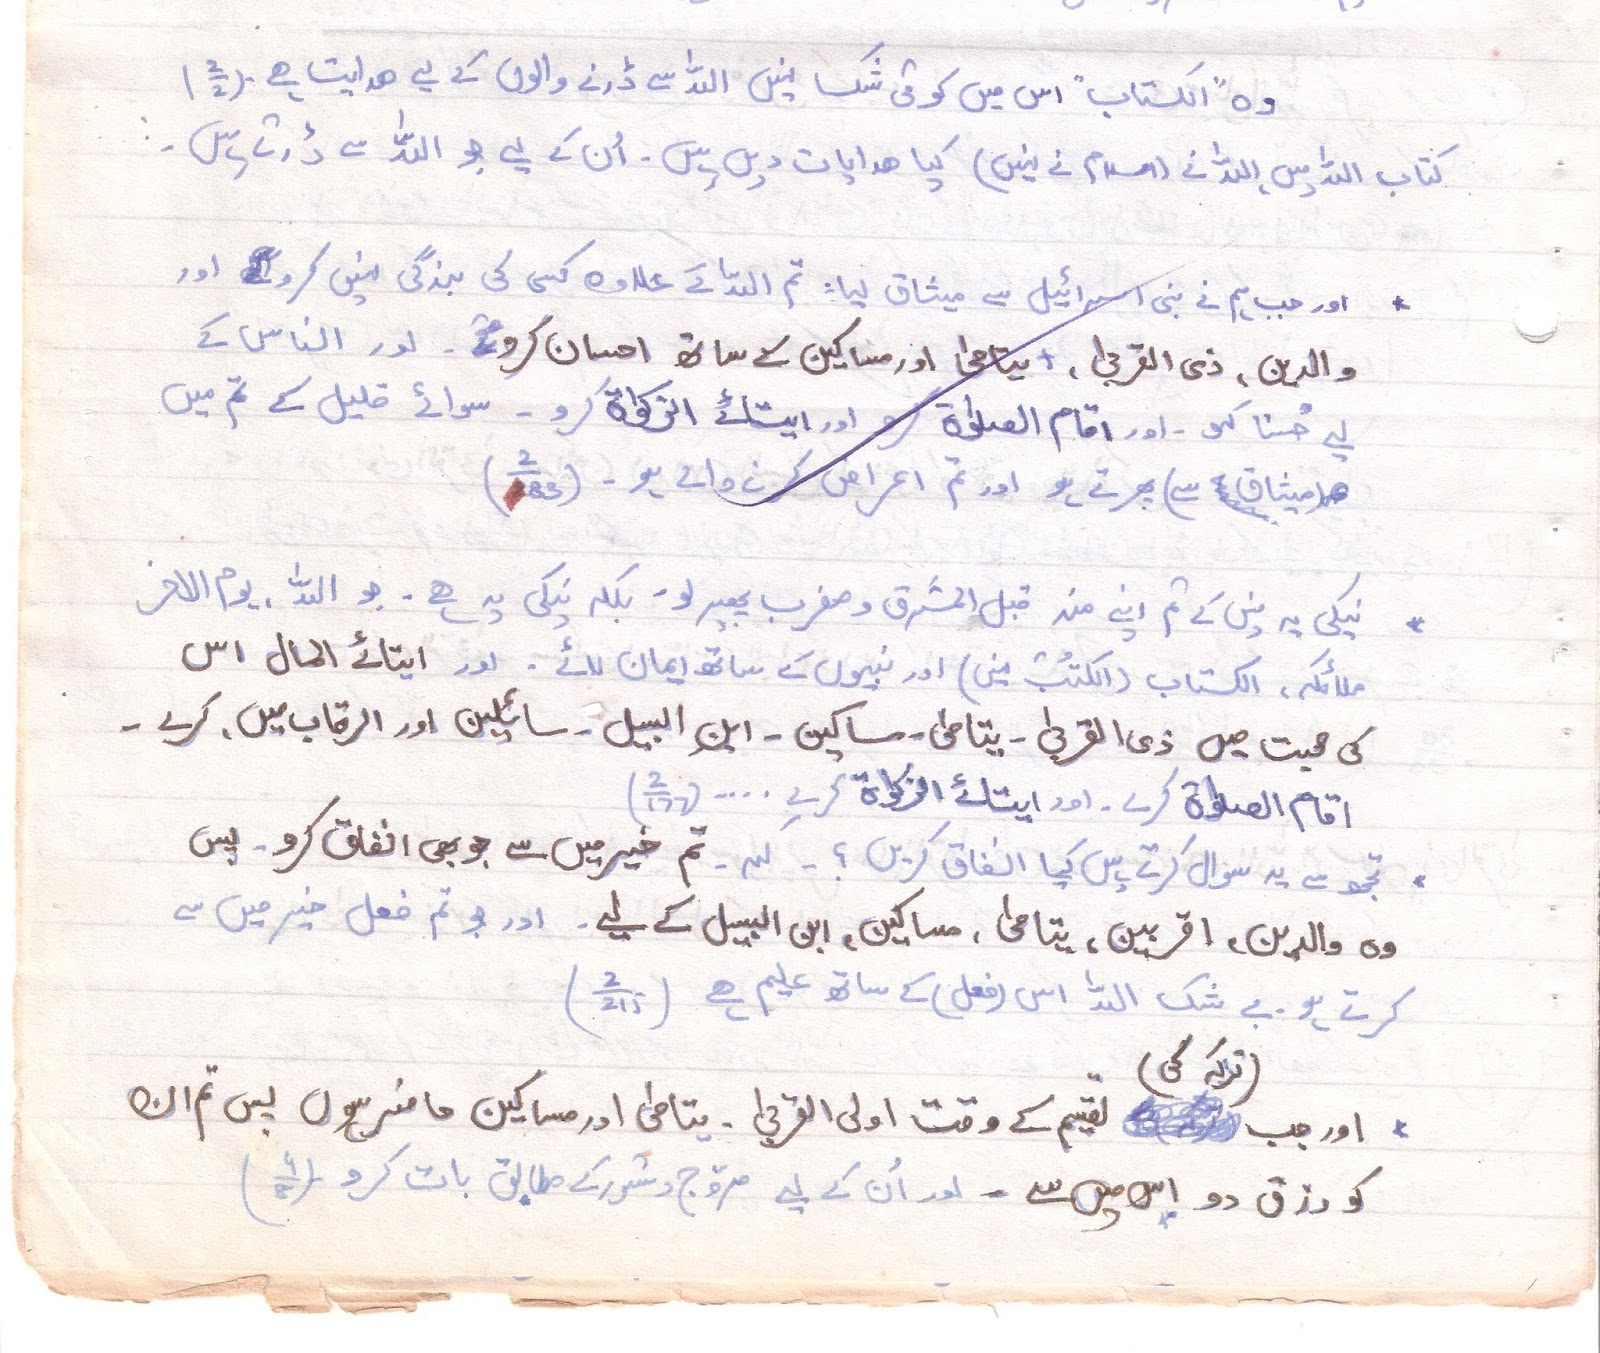 وہ "الکتاب" اس میں کوئی شک نہیں اللہ سے ڈرنے والوں کے لیے ھدایت ہے۔ (2/2)
کتاب اللہ میں اللہ نے (اسلام نے نہیں) کیا ھدایات دیں ہیں۔ اُن کے لیے جو اللہ سے ڈرتے ہیں۔:
* اور جب ہم نے بنی اسرائیل سے میثاق لیا: تم اللہ کے علاوہ کسی کی بندگی نہیں کرو اور
والدین، ذی القربیٰ، یتامیٰ اور مساکین کے ساتھ احسان کرو۔ اور الناس کے
لیے حُسنا کہو۔ اور اقام الصلوٰۃ کرو اور ایتائے الزکوٰۃ کرو۔ سوائے قلیل کے تم میں
(میثاق سے) پھرتے ہو اور تم اعراض کرنے والے ہو۔ (2/83)
* نیکی یہ نہیں کے تم اپنے منہ قبل المشرق و مغرب پھیر لو۔ بلکہ نیکی یہ ہے۔ جو اللہ، یوم الاخر
ملائکہ، الکتاب (الکتُب نہیں) اور نبیوں کے ساتھ ایمان لائے۔ اور ایتائے المال اس
کی محبت میں ذی القربیٰ۔ یتامیٰ۔ مساکین۔ ابن السبیل۔ سائیلین اور الرقاب میں، کرے۔
اقام الصلوٰۃ کرے۔ اور ایتائے الزکوٰۃ کرے.... (2/177)
* تجھ سے یہ سوال کرتے ہیں کیا انفاق کریں؟۔ کہہ۔ تم خیر میں سے جو بھی انفاق کرو۔ پس
وہ والدین، اقربین، یتامیٰ، مساکین، ابن السبیل کے لیے۔ اور جو تم فعل خیر میں سے
کرتے ہو۔ بے شک اللہ اس (فعل) کے ساتھ علیم ہے (2/215)
(ترکہ کی)
* اور جب تقسیم کے وقت اولی القربیٰ۔ یتامیٰ اور مساکین حاضر ہوں پس تم ان
کو رزق دو اس میں سے۔ اور اُن کے لیے مروّج دستور کے مطابق بات کرو۔ (4/8)